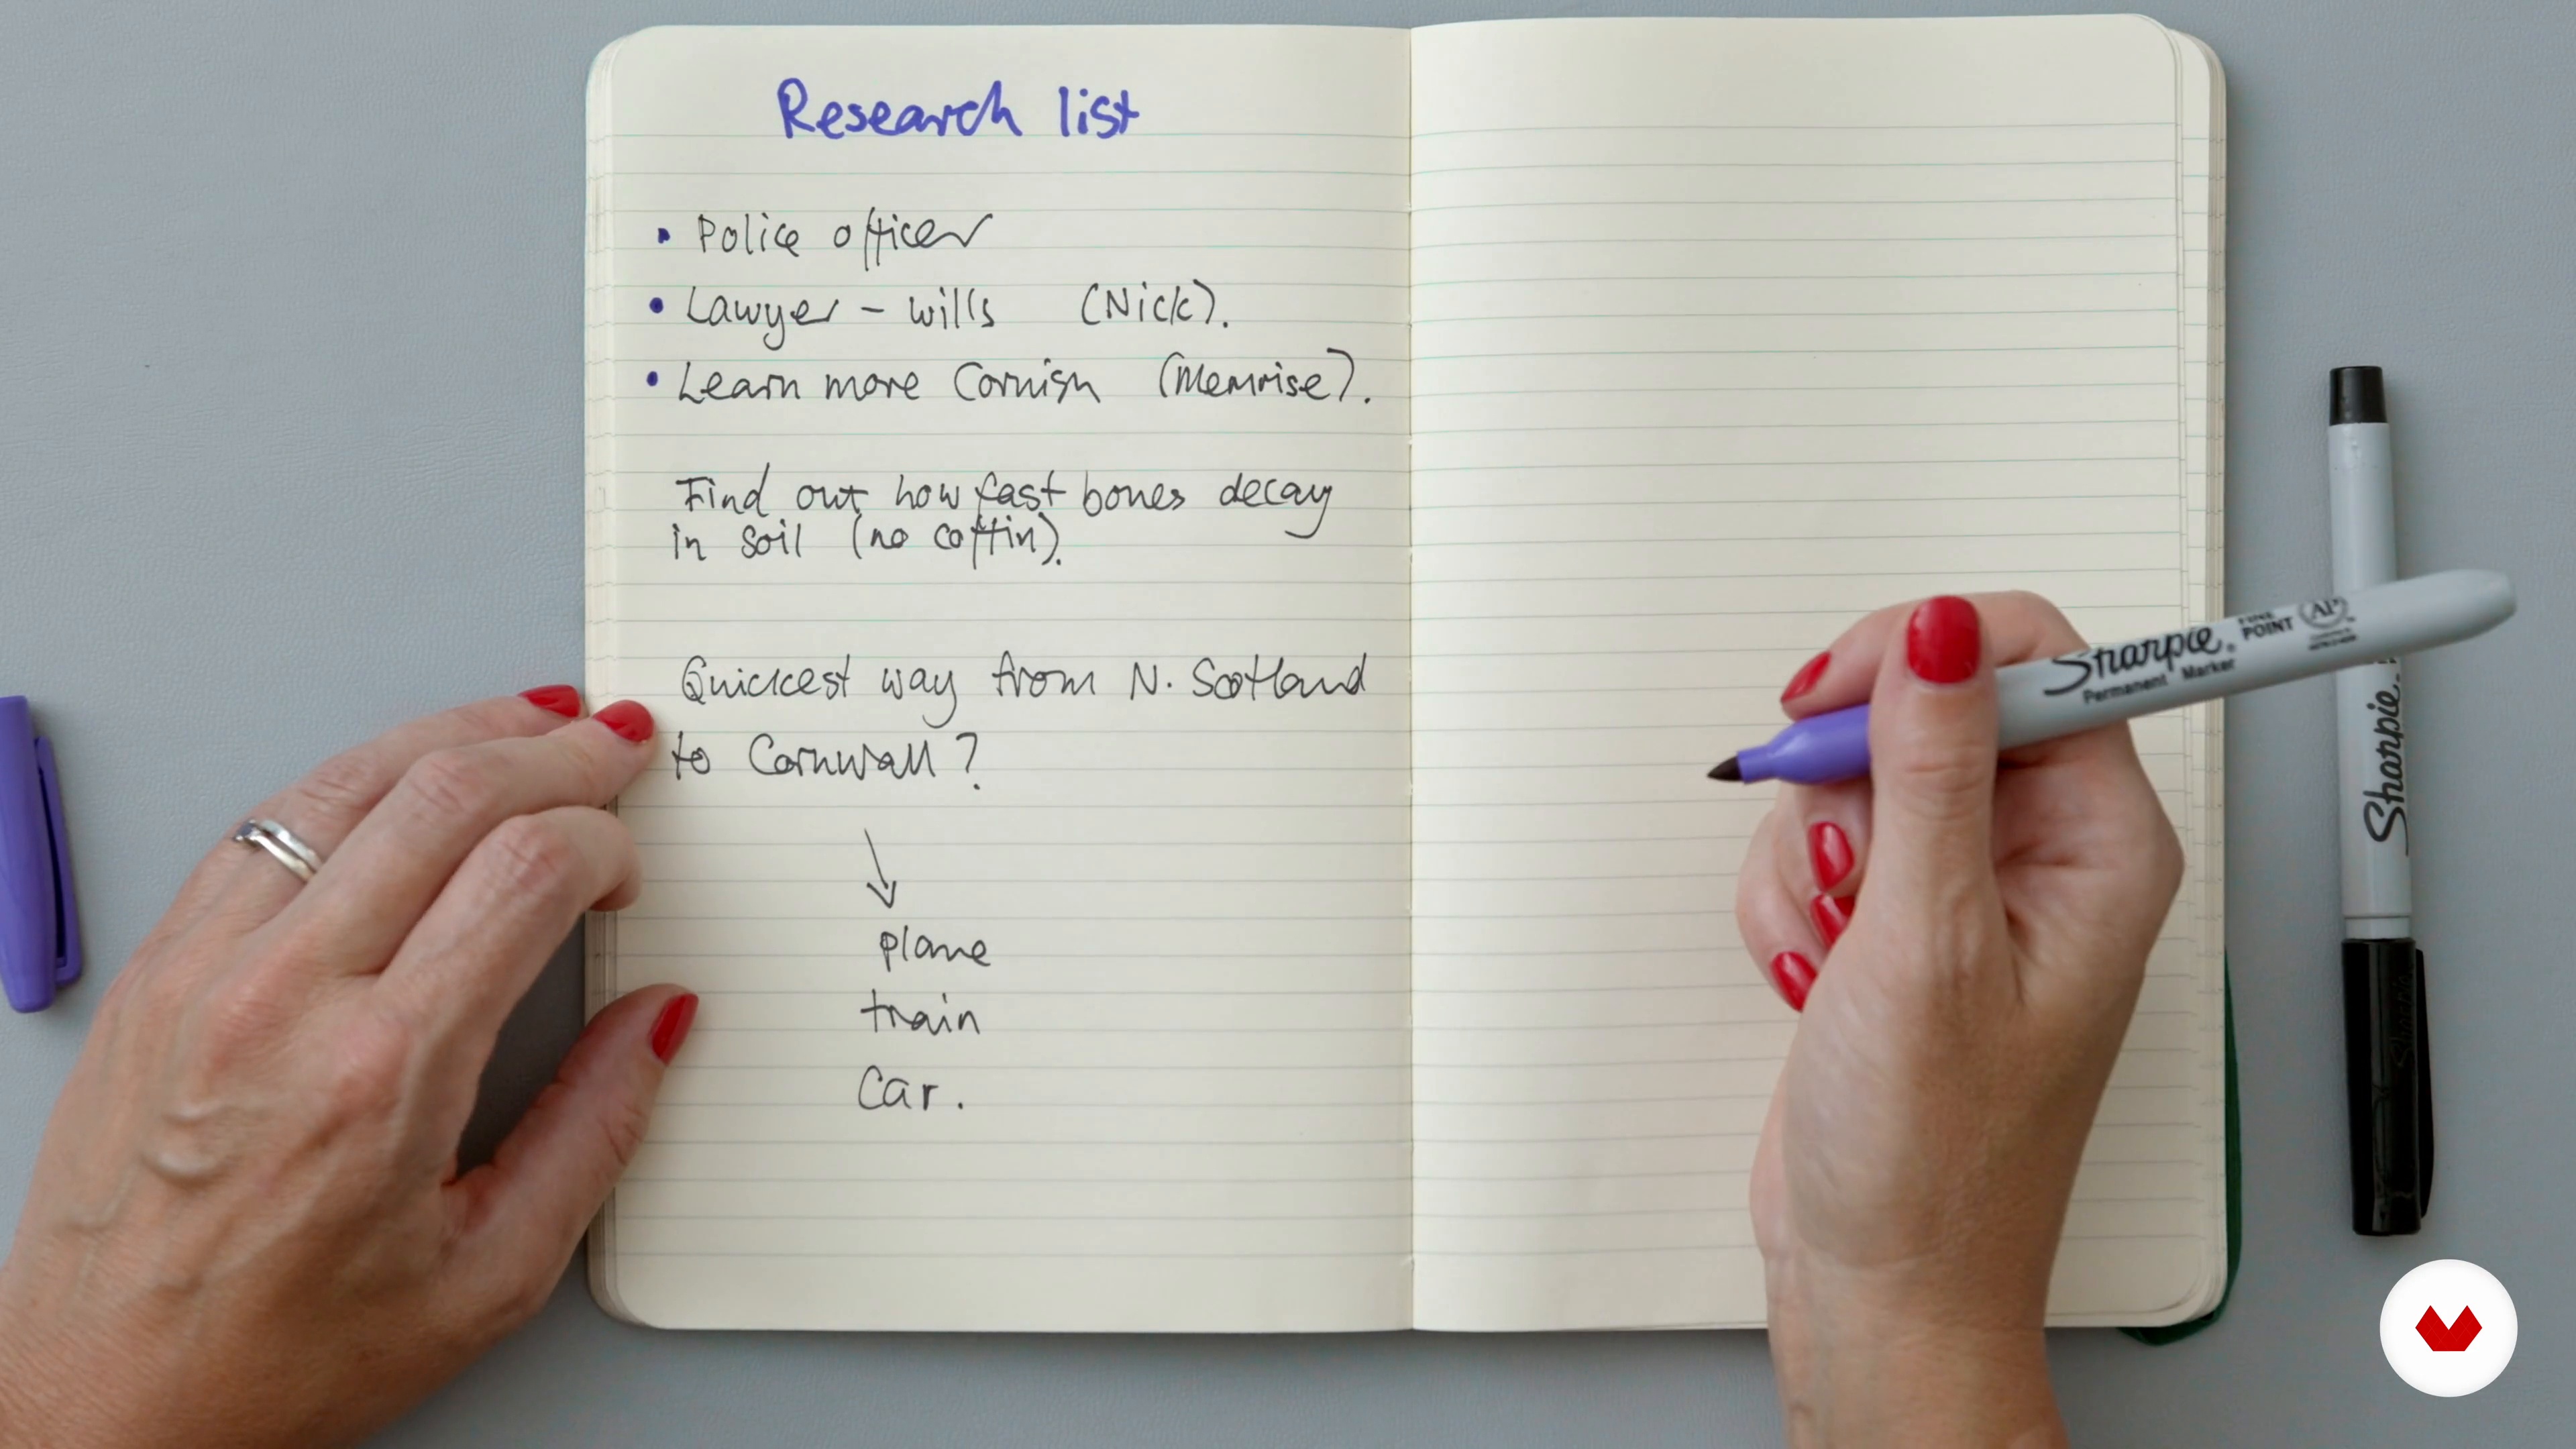 Research list
• Police officer
• Lawyer – wills (Nick).
• Learn more Cornish (Memrise).
Find out how fast bones decay
in soil (no coffin).
Quickest way from N. Scotland
to Cornwall?
plane
train
Car.
Sharpie.
FINE
POINT
AP
Permanent Marker
Sharpie.